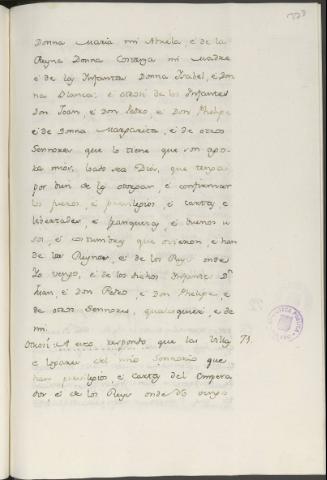 Donna Maria mi Abuela, é de la
Reyna Donna mi Madre
é de las Infantas Donna Isabel, é Don
na Blanca: é otrosi de los Infantes
Don Joan, é Don Pedro, é Don Phelipe
é de Donna Margarita, é de otros
Sennores que lo tiene que
Dios, que tenga
por bien de les otorgar, é confirmar
los fueros, é privilegios, é cartas é
libertades, é franquezas, é buenos u
sos, é costumbres que ovieron, é han
de los Reynos, é de los Reyes onde
Yo vengo, é de los dichos Infante Dn
Juan, é Don Pedro, é Don Phelipe, é
de otros Sennores, qualesquier, é de
mi.
Otrosi A esto respondo que las Villas 73.
é logares del mio Sennorio que
han previlegios, é cartas del Empera
dor, é de los Reyes onde Yo vengo